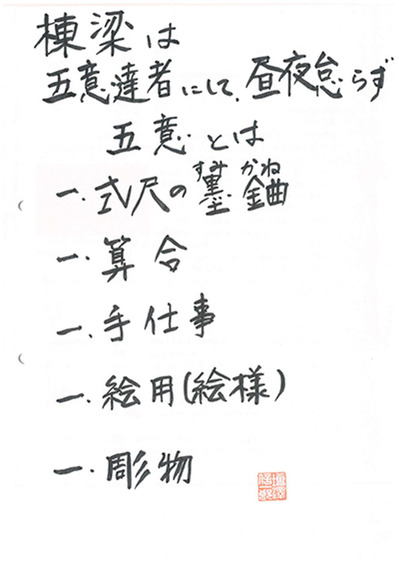 棟梁は
五意達者にして、昼夜怠らず
五意とは
一、式尺の墨鉐
すみ かね
一、算合
一、手仕事
一、絵用(絵様)
一、彫物